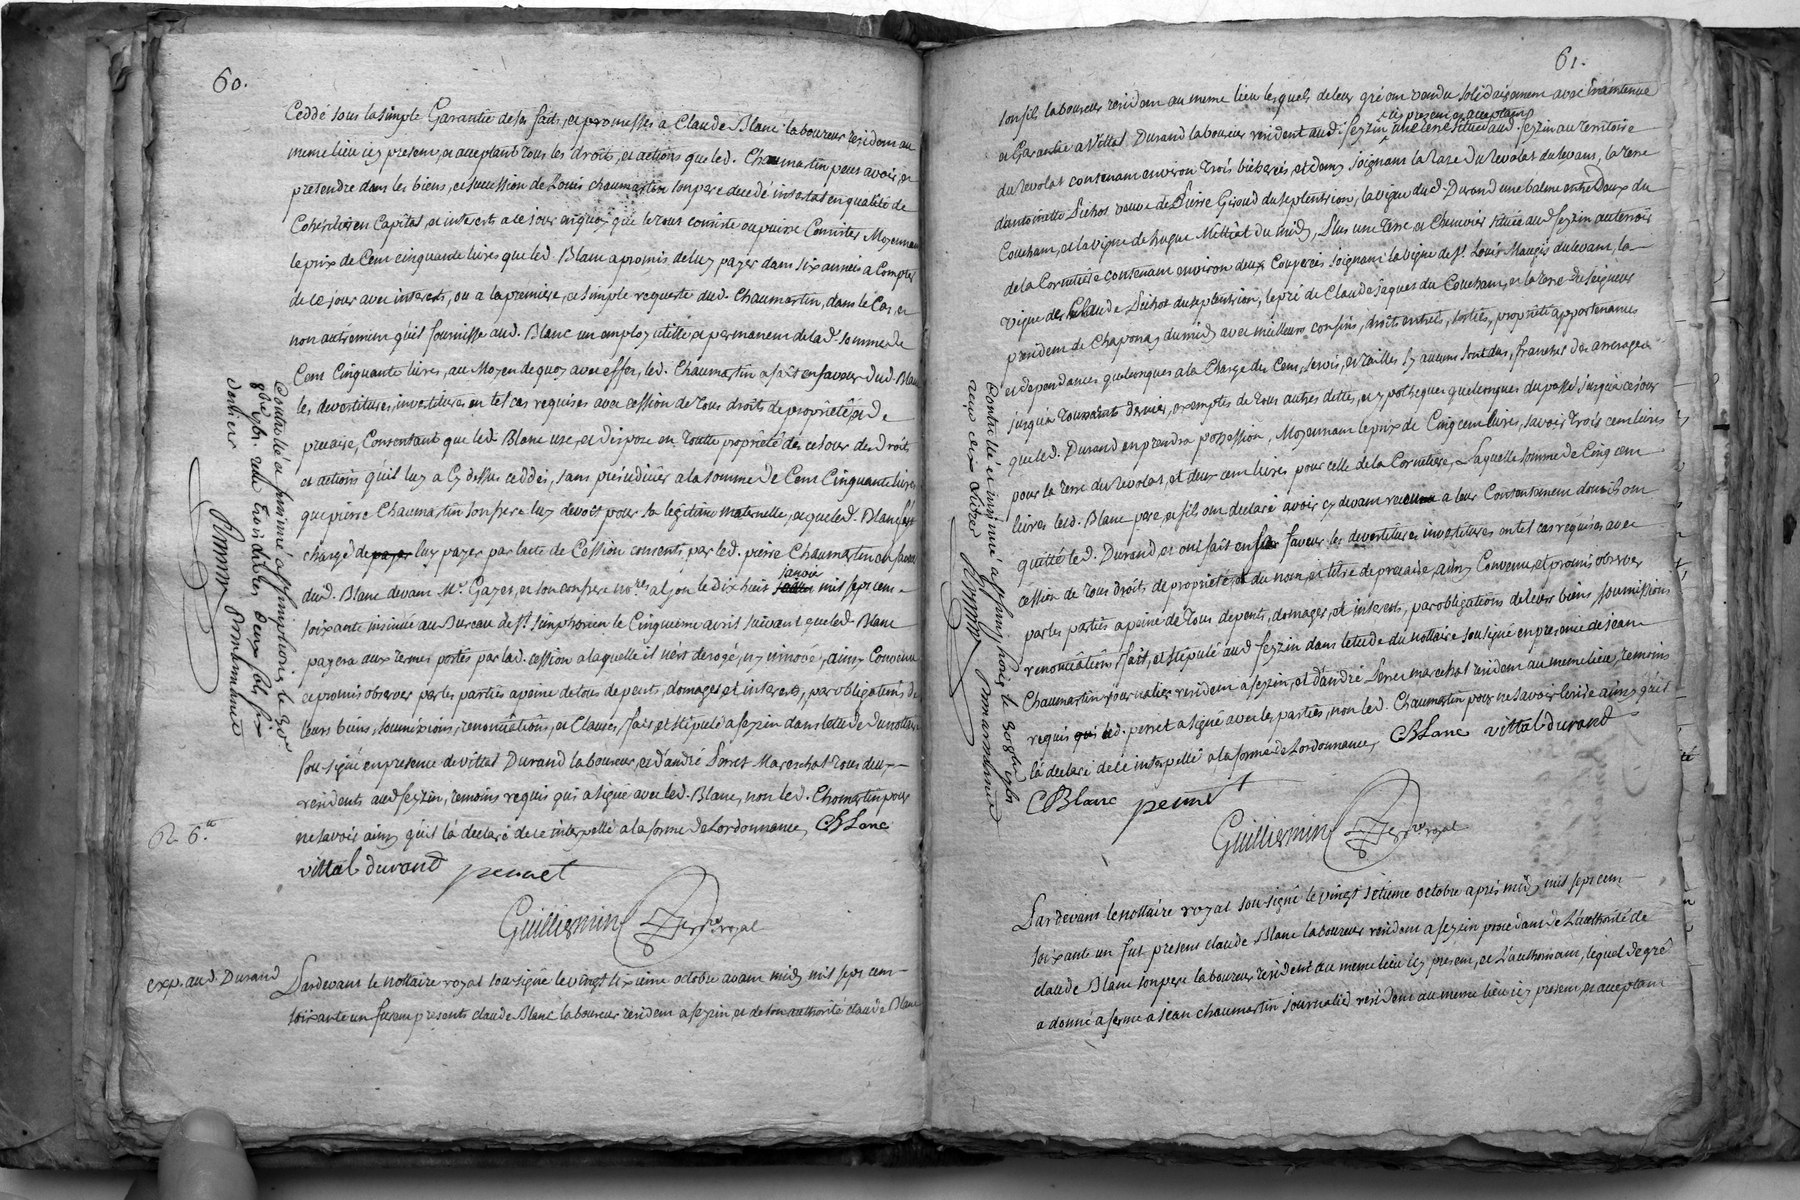 60.
Ceddé sous la simple Garantie de ses faits, et promesses a Claude Blanc laboureur resident au
meme lieu icy present, et acceptant tous les droits, et actions que led. Chaumartin peut avoir, et
pretendre dans les biens, et succession de Louis chaumartin son pere decedé intestat en qualité de
Cohéritier en Capital, et interests a ce jour en quoy que le tout consiste ou puisse Consister Moyennant
le prix de Cent cinquante livres que led. Blanc a promis de luy payer dans six années a Compter
de ce jour avec interests, ou a la premiere, et simple requeste dud. Chaumartin, dans le Cas, et
non autrement qu'il fournisse aud. Blanc un employ utille et permanent de lad. somme de
Cent Cinquante livres, au Moyen de quoy avec effet, led. Chaumartin a fait en faveur dud. Blanc
les devestitures, investitures en tel cas requises avec cession de tous droits de proprieté, et de
precaire, Consentant que led. Blanc use, et dispose en toutte proprieté des ce jour des droits
et actions qu'il luy a cy dessus ceddés, sans prejudicier a la somme de Cent Cinquante livres
que pierre Chaumartin son frere luy devoit pour sa legitime maternelle, et que led. Blanc s'est
chargé de payer luy payer par l'acte de Cession consenti par led. pierre Chaumartin en faveur
dud. Blanc devant Me. Gayet, et son confrere nores. a Lyon le dix huit janvier mil sept cent
soixante insinué au Bureau de St. Simphorien le Cinquieme avril suivant que led. Blanc
payera aux termes portés par lad. cession a laquelle il n'est derogé, ny innové, ainsy Convenu
et promis observer par les parties a peine de tous depents, domages, et interests, par obligations de
leurs biens, soumissions, renonciations, et Clauses, fait et stipulé a feyzin dans l'etude du nottaire
sou-signé en presence de vittal Durand laboureur, et d'andré Perret Mareschal tous deux
residents aud. feyzin, temoins requis qui a signé avec led. Blanc, non led. Chomartin pour
ne savoir ainsy qu'il l'a declaré de ce interpellé a la forme de Lordonnance, CBLanc
vittal durand perret
Guilliermin nore. royal
Controllé a
simphorien le 30
8bre 1761. reçu trois livres
exp. aud. Durand
Pardevant le nottaire royal sou-signé le vingt sixieme octobre avant midy mil sept cent
soixante un furent presents claude Blanc laboureur resident a feyzin, et de son authorité claude Blanc
61.
son fils laboureur resident au meme lieu lesquels de leur gré ont vendu solidairement avec maintenue
icy present, et acceptant
et Garantie a Vittal Durand laboureur resident aud. feyzin une terre située aud. feyzin au territoire
du revolat contenant environ trois bicherées, et demy joignant la raze du revolat du levant, la terre
d'antoinette Pichot veuve de Pierre Giroud du septentrion, la vigne dud. Durand une balme entre deux du
Couchant, et la vigne de hugue Milliat du midy, Plus une terre et chanvier située aud. feyzin au terroir
de la Cornetiere contenant environ deux Couperées joignant la vigne de Sr. Louis Maugis du levant, la
vigne de Claude Pichot du septentrion, le pré de Claude jaques du Couchant, et la terre du seigneur
president de Chaponay du midy avec meilleurs confins, droits entrées, sorties, proprietés appartenances
et dependances quelconques a la Charge des Cens, servis, et tailles sy aucuns sont dus, franches des arrerages
jusqu'a toussaint dernier, exemptes de tous autres dettes, et ypotheques quelconques du passé jusqu'a ce jour
que led. Durand en prendra possession, Moyennant le prix de Cinq cent livres, savoir trois cent livres
pour la terre du revolat, et deux cent livres pour celle de la Cornetiere, Laquelle somme de Cinq cent
livres led. Blanc pere, et fils ont declaré avoir cy devant receue a leur Contentement dont ils ont
quitté led. Durand, et ont fait en sa faveur les devestitures investitures en tel cas requises avec
cession de tous droits de proprieté, et du nom, et titre de precaire, ainsy Convenu, et promis observer
par les parties a peine de tous depents, domages, et interests, par obligations de leurs biens soumissions
renonciations, fait, et stipulé aud. feyzin dans l'etude du nottaire sousigné en presence de jean
Chaumartin journalier resident a feyzin, et d'andré Perret marechal resident au meme lieu, temoins
requis led. perret a signé avec les parties, non led. Chaumartin pour ne savoir écrire ainsy qu'il
l'a declaré de ce interpellé a la forme de Lordonnance, CBLanc vittal durand
CBlanc perret
Guilliermin nore. royal
Pardevant le nottaire royal sou-signé le vingt setieme octobre après midy mil sept cent
soixante un fut present claude Blanc laboureur resident a feyzin procedant de L'authorité de
claude Blanc son pere laboureur resident au meme lieu icy present, et L'authorisant, lequel de gré
a donné a ferme a jean chaumartin journalier resident au meme lieu icy present, et acceptant